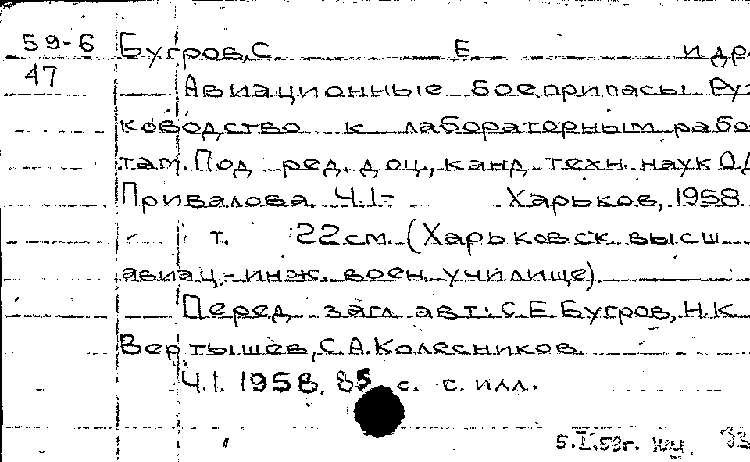 59-6 Бугров, С. Е. и др.
47 Авиационные боеприпасы. Ру-
ководство к лабораторным рабо-
там. Под ред. доц., канд. техн. наук
Привалова. Ч.1- Харьков, 1958
т. 22 см. (Харьковск. высш.
авиац.-инж. воен. училище).
Перед загл. авт.: С.Е. Бугров, Н.К.
Вертышев, С.А. Колесников.
Ч.1. 1958. 85 с. с илл.
5.I.59г.